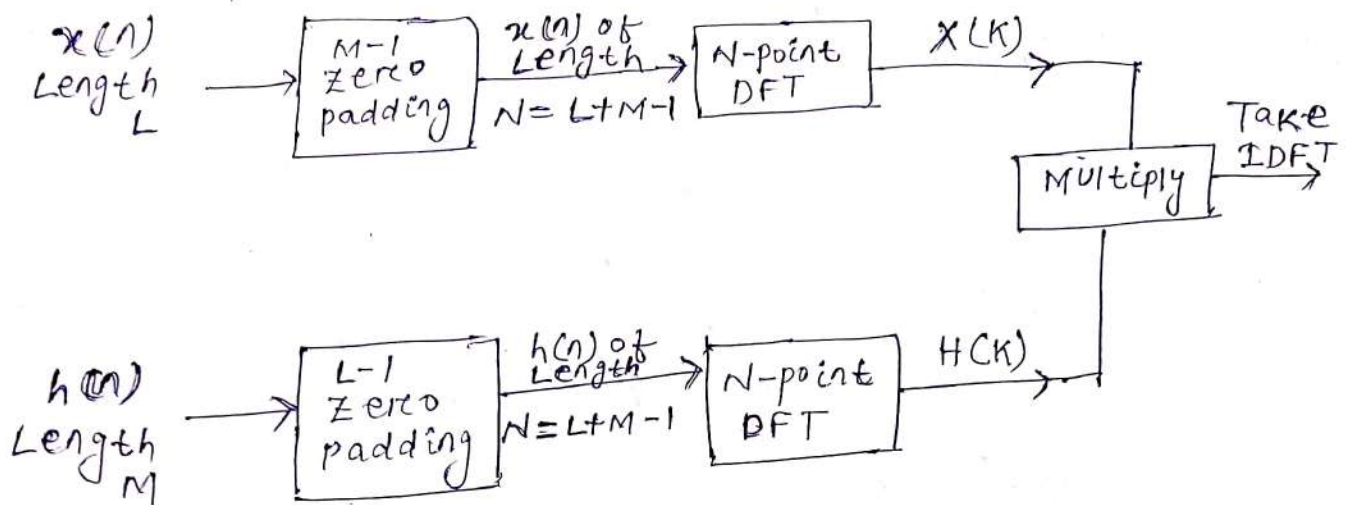 x(n)
Length
L
M-1
zero
padding
x(n) of
Length
N= L+M-1
N-point
DFT
X(K)
Multiply
Take
IDFT
h(n)
Length
M
L-1
zero
padding
h(n) of
Length
N=L+M-1
N-point
DFT
H(K)